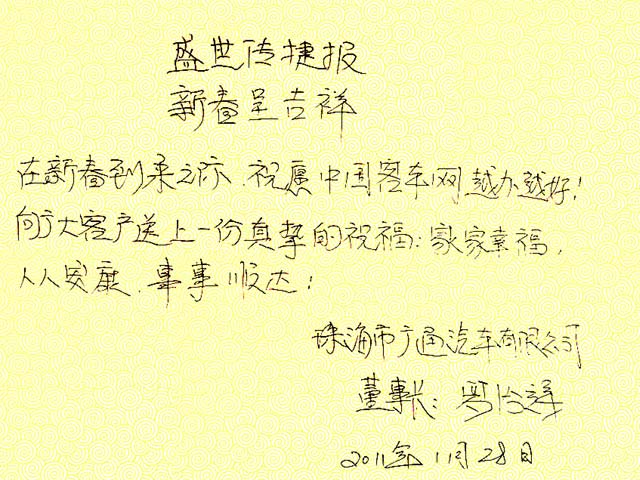 盛世传捷报
新春呈吉祥
在新春到来之际,祝愿中国客车网越办越好!
向广大客户送上一份真挚的祝福:家家幸福,
人人安康,事事顺达!
珠海市广通汽车有限公司
董事长:
2011年11月28日